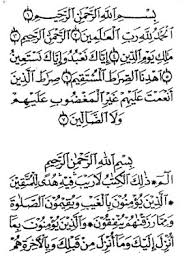 بِسْمِ اللهِ الرَّحْمٰنِ الرَّحِيْمِ
اَلْحَمْدُ لِلّٰهِ رَبِّ الْعٰلَمِيْنَ الرَّحْمٰنِ الرَّحِيْمِ
مٰلِكِ يَوْمِ الدِّيْنِ اِيَّاكَ نَعْبُدُ وَاِيَّاكَ نَسْتَعِيْنُ
اِهْدِنَا الصِّرَاطَ الْمُسْتَقِيْمَ صِرَاطَ الَّذِيْنَ
اَنْعَمْتَ عَلَيْهِمْ غَيْرِ الْمَغْضُوْبِ عَلَيْهِمْ
وَلَا الضَّالِّيْنَ
بِسْمِ اللهِ الرَّحْمٰنِ الرَّحِيْمِ
الٓمّٓ ذٰلِكَ الْكِتٰبُ لَا رَيْبَ فِيْهِ هُدًى لِّلْمُتَّقِيْنَ
الَّذِيْنَ يُؤْمِنُوْنَ بِالْغَيْبِ وَيُقِيْمُوْنَ الصَّلٰوةَ
وَمِمَّا رَزَقْنٰهُمْ يُنْفِقُوْنَ وَالَّذِيْنَ يُؤْمِنُوْنَ بِمَا
اُنْزِلَ اِلَيْكَ وَمَا اُنْزِلَ مِنْ قَبْلِكَ وَبِالْاٰخِرَةِ هُمْ